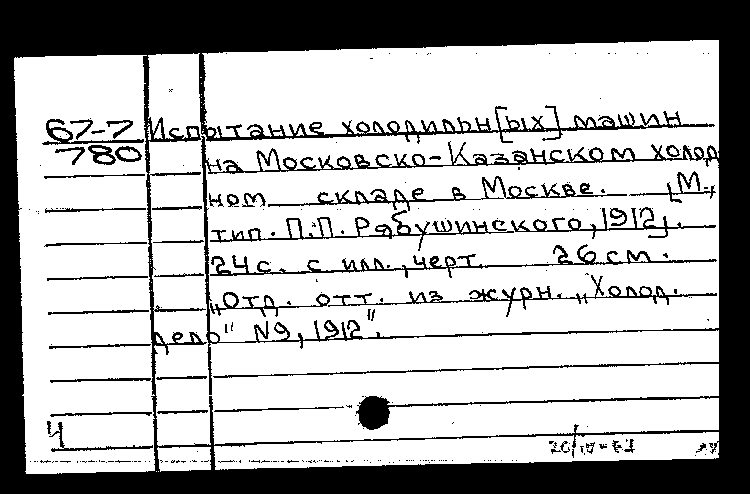 67-7 Испытание холодильн[ых] машин
780 на Московско-Казанском холод
ном складе в Москве. [М.,
тип. П.П. Рябушинского, 1912].
24 с. с илл., черт. 26 см.
„Отд. отт. из журн. „Холод.
дело" N9, 1912".
Ч